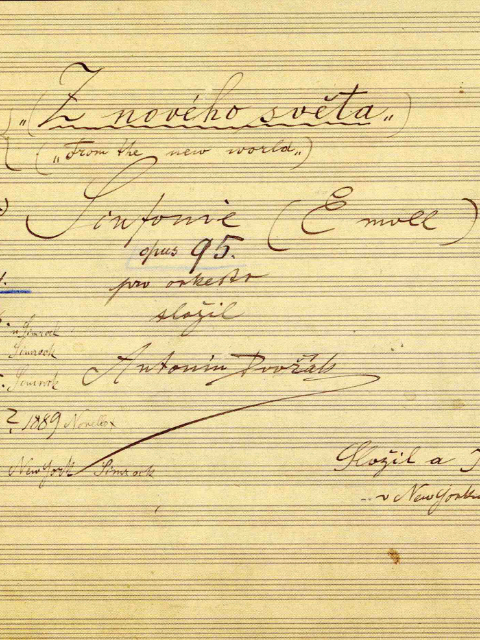 „Z nového světa„
(„From the new world„)
Sinfonie (E moll)
opus 95.
pro orkestr
složil
Simrock
Simrock
Simrock
Antonín Dvořák
1889 Novello
New York Simrock
Složil a
v New Yorku